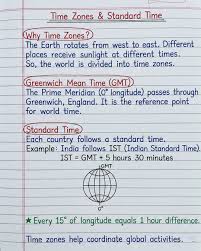 Time Zones & Standard Time
Why Time Zones?
The Earth rotates from west to east. Different
places receive sunlight at different times.
So, the world is divided into time zones.
Greenwich Mean Time (GMT)
The Prime Meridian (0° longitude) passes through
Greenwich, England. It is the reference point
for world time.
Standard Time
Each country follows a standard time.
Example: India follows IST (Indian Standard Time).
IST = GMT + 5 hours 30 minutes
GMT
0°
★ Every 15° of longitude equals 1 hour difference.
Time zones help coordinate global activities.